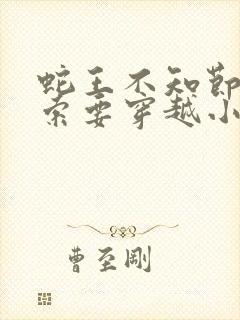 蛇王不知節
索要穿越小
曹至剛